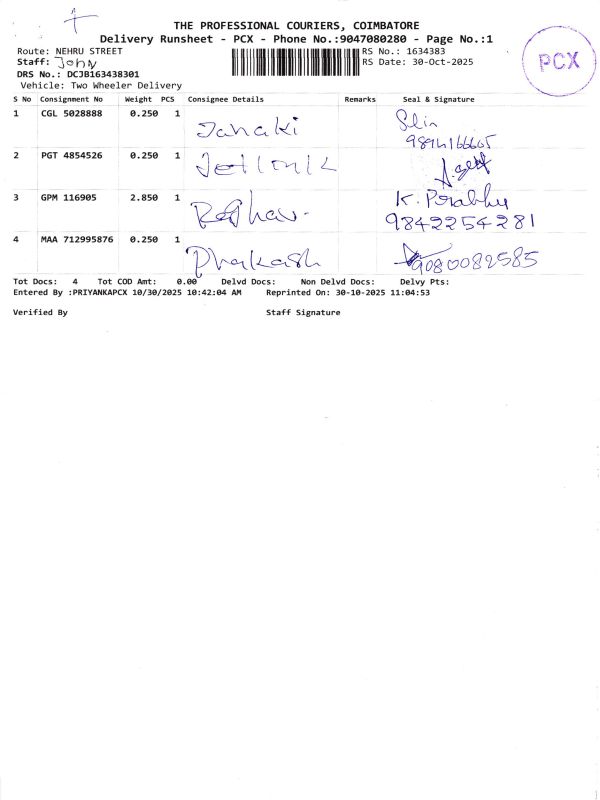 THE PROFESSIONAL COURIERS, COIMBATORE
Delivery Runsheet - PCX - Phone No.:9047080280 - Page No.:1
Route: NEHRU STREET RS No.: 1634383
Staff: John RS Date: 30-Oct-2025
DRS No.: DCJB163438301
Vehicle: Two Wheeler Delivery
PCX
S No Consignment No Weight PCS Consignee Details Remarks Seal & Signature
1 CGL 5028888 0.250 1 Janaki
2 PGT 4854526 0.250 1
3 GPM 116905 2.850 1 Raghav. K. Prabhu
9842254281
4 MAA 712995876 0.250 1 Prakash 9080082585
Tot Docs: 4 Tot COD Amt: 0.00 Delvd Docs: Non Delvd Docs: Delvy Pts:
Entered By :PRIYANKAPCX 10/30/2025 10:42:04 AM Reprinted On: 30-10-2025 11:04:53
Verified By Staff Signature